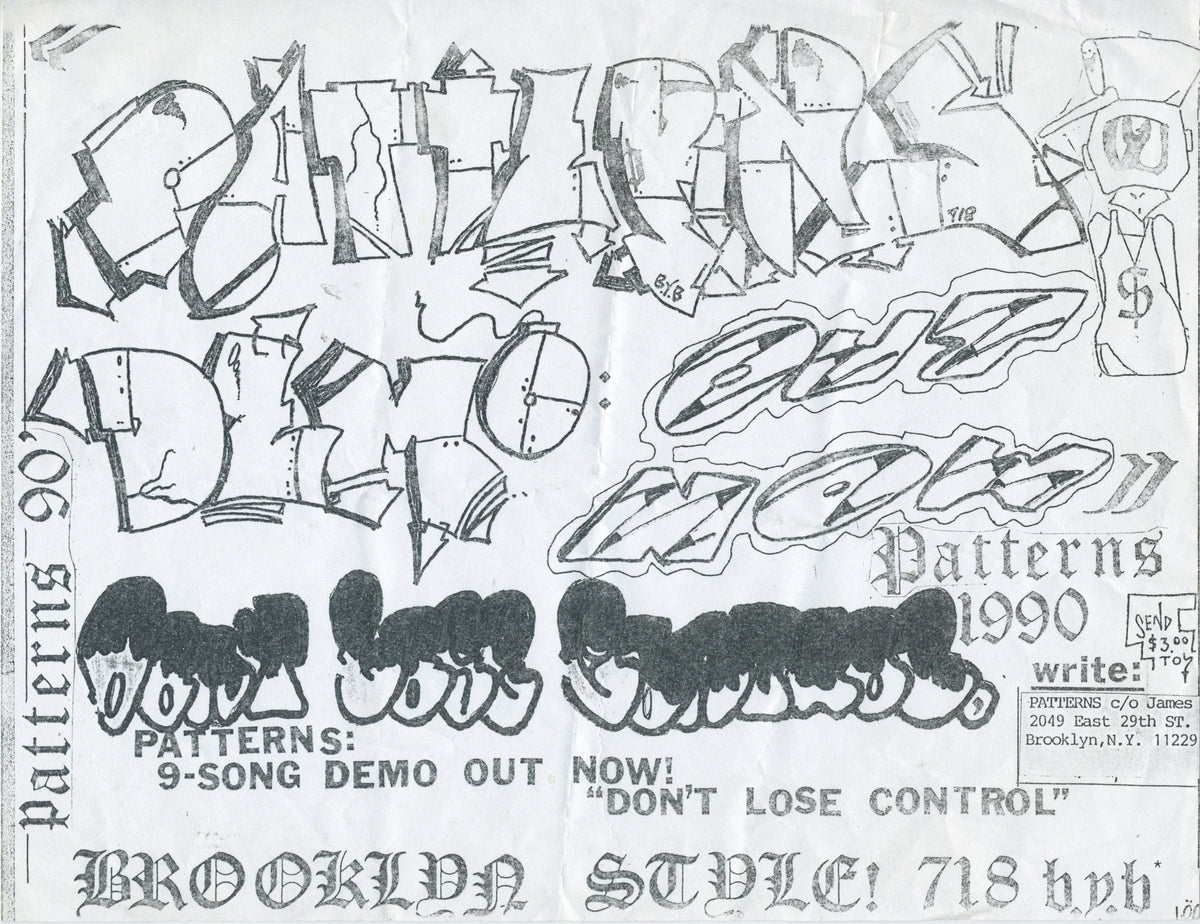 PATTERNS
718
B.Y.B
$
DEMO:
OUT
NOW
Patterns 90'
Patterns
1990
DON'T LOSE CONTROL
SEND
$3.00
TO
write:
PATTERNS c/o James
2049 East 29th ST.
Brooklyn,N.Y. 11229
PATTERNS:
9-SONG DEMO OUT NOW!
"DON'T LOSE CONTROL"
BROOKLYN STYLE! 718 b.y.b*